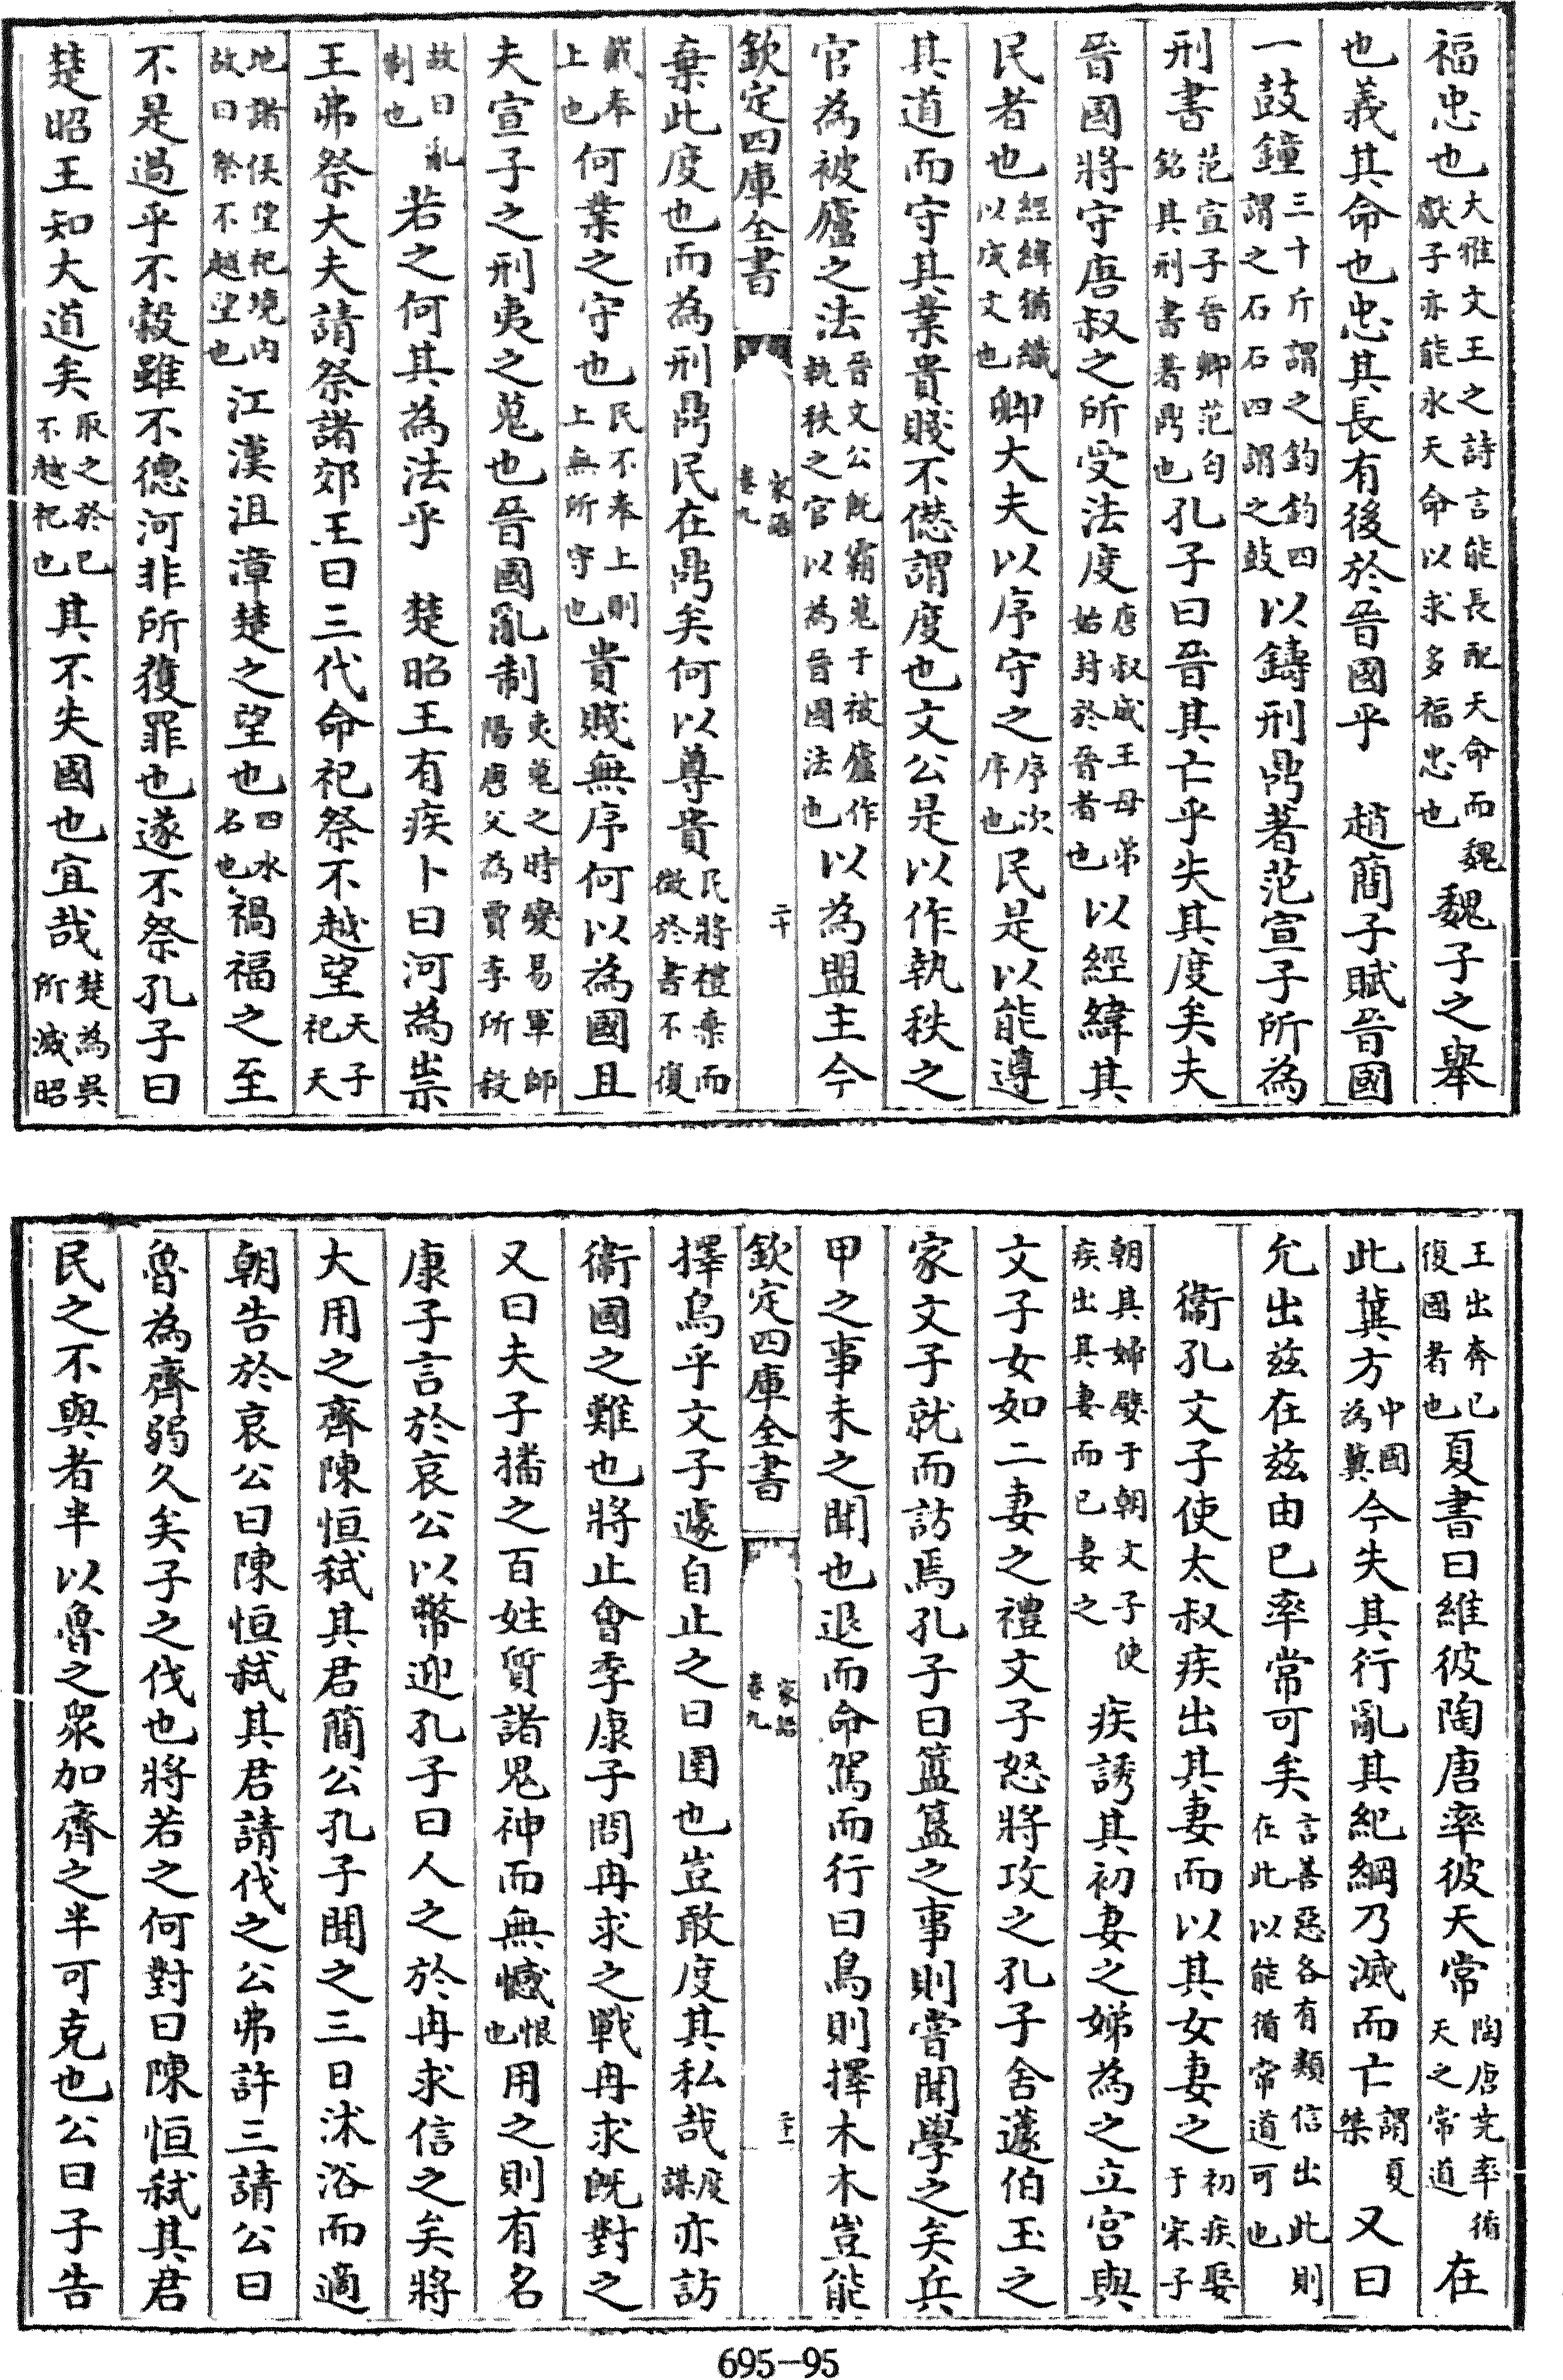 福忠也大雅文王之詩言能長配天命而魏獻子亦能永天命以求多福忠也魏子之舉
也義其命也忠其長有後於晉國乎　趙簡子賦晉國
一鼓鐘三十斤謂之鈞鈞四謂之石石四謂之鼓以鑄刑鼎著范宣子所為
刑書范宣子晉卿范匄銘其刑書著鼎也孔子曰晉其亡乎失其度矣夫
晉國將守唐叔之所受法度唐叔成王母弟始封於晉者也以經緯其
民者也經緯猶織以成文也卿大夫以序守之序次序也民是以能遵
其道而守其業貴賤不愆謂度也文公是以作執秩之
官為被廬之法晉文公既霸蒐于被廬作執秩之官以為晉國法也以為盟主今
欽定四庫全書　家語卷九　二十
棄此度也而為刑鼎民在鼎矣何以尊貴民將禮棄而徵於書不復
戴奉上也何業之守也民不奉上則上無所守也貴賤無序何以為國且
夫宣子之刑夷之蒐也晉國亂制夷蒐之時變易軍師陽唐父為賈季所殺
故曰亂制也若之何其為法乎　楚昭王有疾卜曰河為祟
王弗祭大夫請祭諸郊王曰三代命祀祭不越望天子祀天
地諸侯望祀境内故曰祭不越望也江漢沮漳楚之望也四水名也禍福之至
不是過乎不穀雖不德河非所獲罪也遂不祭孔子曰
楚昭王知大道矣取之於已不越祀也其不失國也宜哉楚為吳所滅昭
王出奔已復國者也夏書曰維彼陶唐率彼天常陶唐堯率循天之常道在
此冀方中國為冀今失其行亂其紀綱乃滅而亡謂夏桀又曰
允出兹在兹由已率常可矣言善惡各有類信出此則在此以能循常道可也
衛孔文子使太叔疾出其妻而以其女妻之初疾娶于宋子
朝其婦嬖于朝文子使疾出其妻而已妻之疾誘其初妻之娣為之立宫與
文子女如二妻之禮文子怒將攻之孔子舍蘧伯玉之
家文子就而訪焉孔子曰簠簋之事則嘗聞學之矣兵
甲之事未之聞也退而命駕而行曰鳥則擇木木豈能
欽定四庫全書　家語卷九　二十一
擇鳥乎文子遽自止之曰圉也豈敢度其私哉度謀亦訪
衛國之難也將止會季康子問冉求之戰冉求既對之
又曰夫子播之百姓質諸鬼神而無憾恨也用之則有名
康子言於哀公以幣迎孔子曰人之於冉求信之矣將
大用之齊陳恒弑其君簡公孔子聞之三日沐浴而適
朝告於哀公曰陳恒弑其君請伐之公弗許三請公曰
魯為齊弱久矣子之伐也將若之何對曰陳恒弑其君
民之不與者半以魯之衆加齊之半可克也公曰子告
695-95